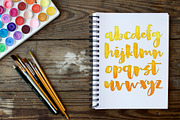 abcdefg
hijklmno
pqrst
uvwxyz